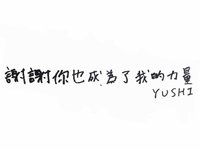 謝謝你也成為了我的力量
YUSHI